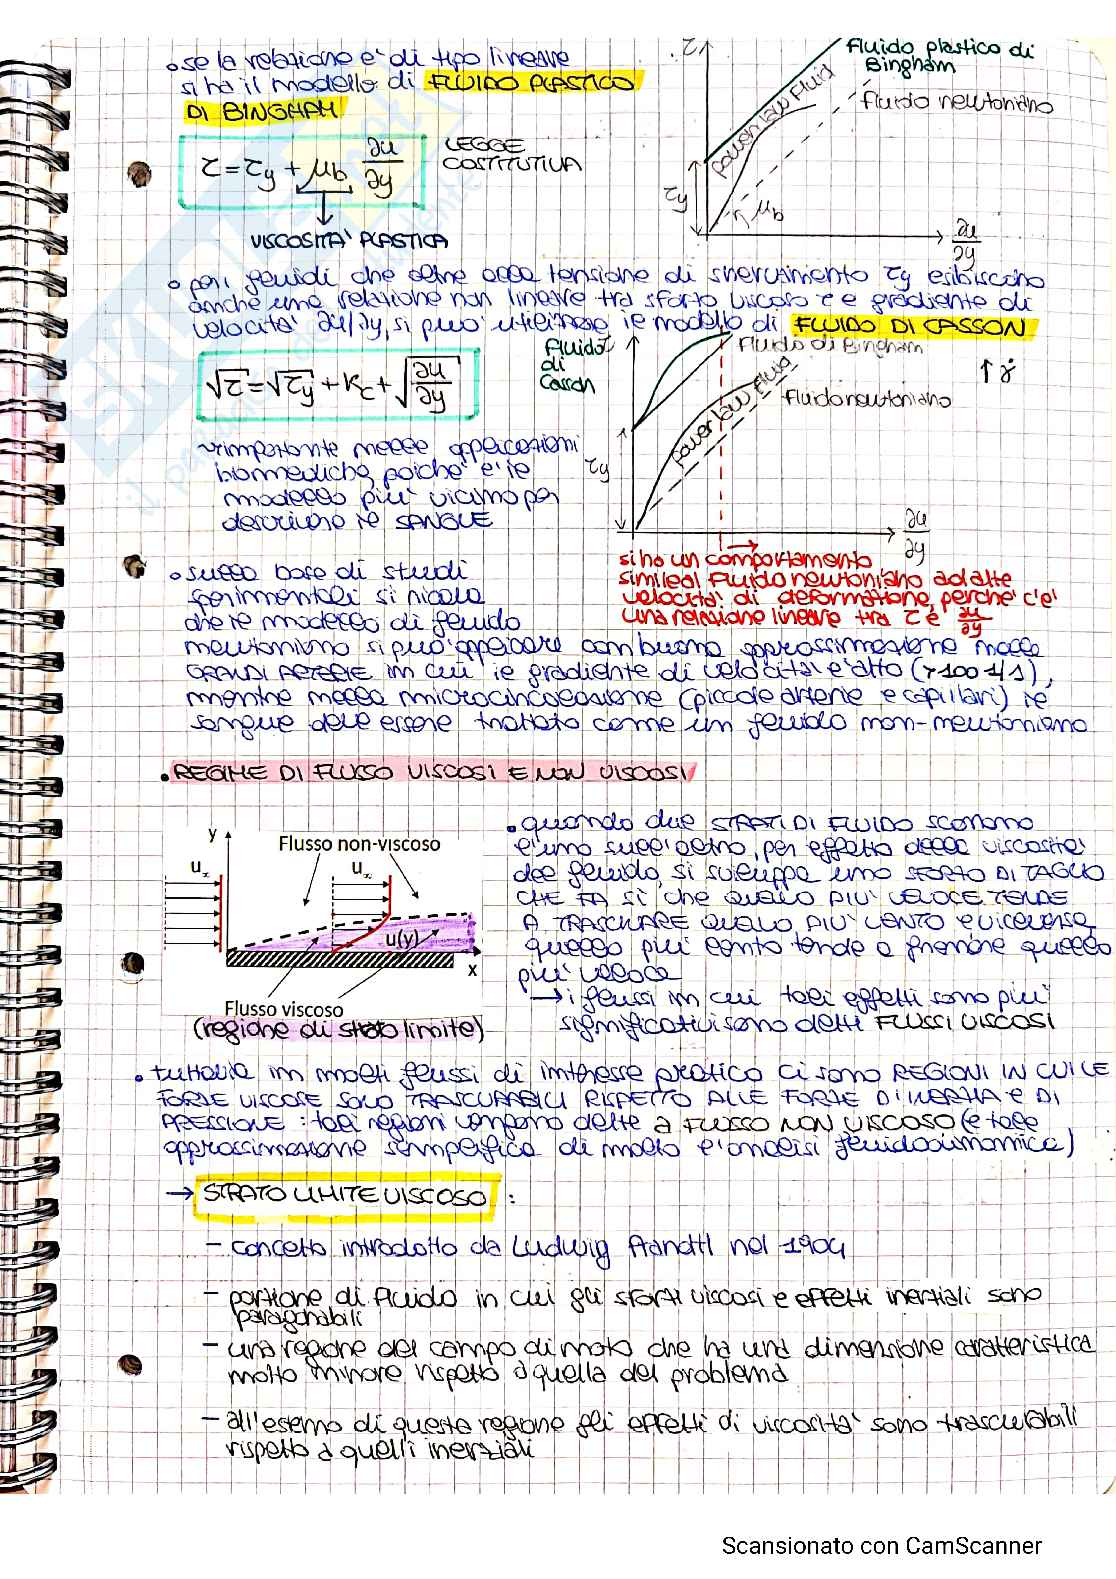 • se la relazione e' di tipo lineare
si ha il modello di FLUIDO PLASTICO
DI BINGHAM
τ = τy + μb ∂u/∂y
LEGGE
COSTITUTIVA
VISCOSITA' PLASTICA
τ
Fluido plastico di
Bingham
power law fluid
Fluido newtoniano
τy
μb
∂u/∂y
• per i fluidi che oltre alla tensione di snervamento τy esibiscono
anche una relazione non lineare tra sforzo viscoso τ e gradiente di
velocita' ∂u/∂y, si puo' utilizzare il modello di FLUIDO DI CASSON
√τ = √τy + Kc + √∂u/∂y
Fluido
di
Casson
τ
Fluido di Bingham
power law fluid
Fluido newtoniano
↑ γ̇
τy
∂u/∂y
→ importante nelle applicazioni
biomediche, poiche' e' il
modello piu' vicino per
descrivere il SANGUE
si ha un comportamento
simile al Fluido newtoniano ad alte
velocita' di deformazione, perche' c'e'
una relazione lineare tra τ e ∂u/∂y
• sulla base di studi
sperimentali si ricava
che il modello di fluido
newtoniano si puo' applicare con buona approssimazione nelle
GRANDI ARTERIE in cui il gradiente di velocita' e' alto (>100 1/s),
mentre nella microcircolazione (piccole arterie e capillari) il
sangue deve essere trattato come un fluido non-newtoniano
• REGIME DI FLUSSO VISCOSI E NON VISCOSI
y
Flusso non-viscoso
ux
ux
u(y)
x
Flusso viscoso
(regione di strato limite)
• quando due STRATI DI FLUIDO scorrono
l'uno sull'altro, per effetto della viscosita'
del fluido, si sviluppa uno SFORZO DI TAGLIO
CHE FA SI' CHE QUELLO PIU' VELOCE TENDE
A TRASCINARE QUELLO PIU' LENTO e viceversa
quello piu' lento tende a frenare quello
piu' veloce
→ i flussi in cui tali effetti sono piu'
significativi sono detti FLUSSI VISCOSI
• tuttavia in molti flussi di interesse pratico ci sono REGIONI IN CUI LE
FORZE VISCOSE SONO TRASCURABILI RISPETTO ALLE FORZE D'INERZIA e DI
PRESSIONE : tali regioni vengono dette a FLUSSO NON VISCOSO (e tale
approssimazione semplifica di molto l'analisi fluidodinamica)
→ STRATO LIMITE VISCOSO :
- concetto introdotto da Ludwig Prandtl nel 1904
- porzione di fluido in cui gli sforzi viscosi e effetti inerziali sono
paragonabili
- una regione del campo di moto che ha una dimensione caratteristica
molto minore rispetto a quella del problema
- all'esterno di questa regione gli effetti di viscosita' sono trascurabili
rispetto a quelli inerziali
Scansionato con CamScanner